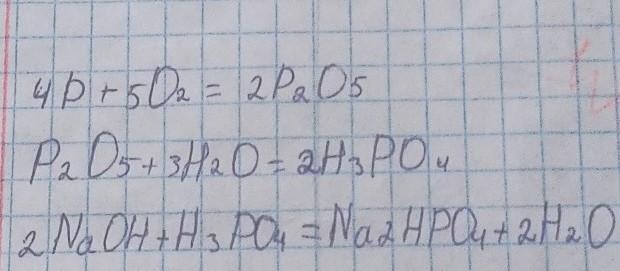 4P + 5O2 = 2P2O5
P2O5 + 3H2O = 2H3PO4
2NaOH + H3PO4 = Na2HPO4 + 2H2O